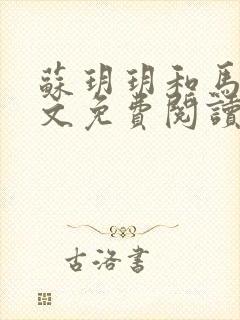 蘇玥玥和馬
文免費閱讀
古洛書